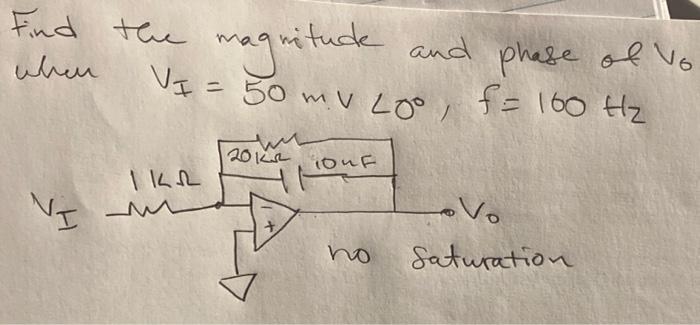 Find the magnitude and phase of Vo
when VI = 50 mV ∠0°, f = 160 Hz
20KΩ 10nF
1KΩ
VI
-
+
Vo
no saturation